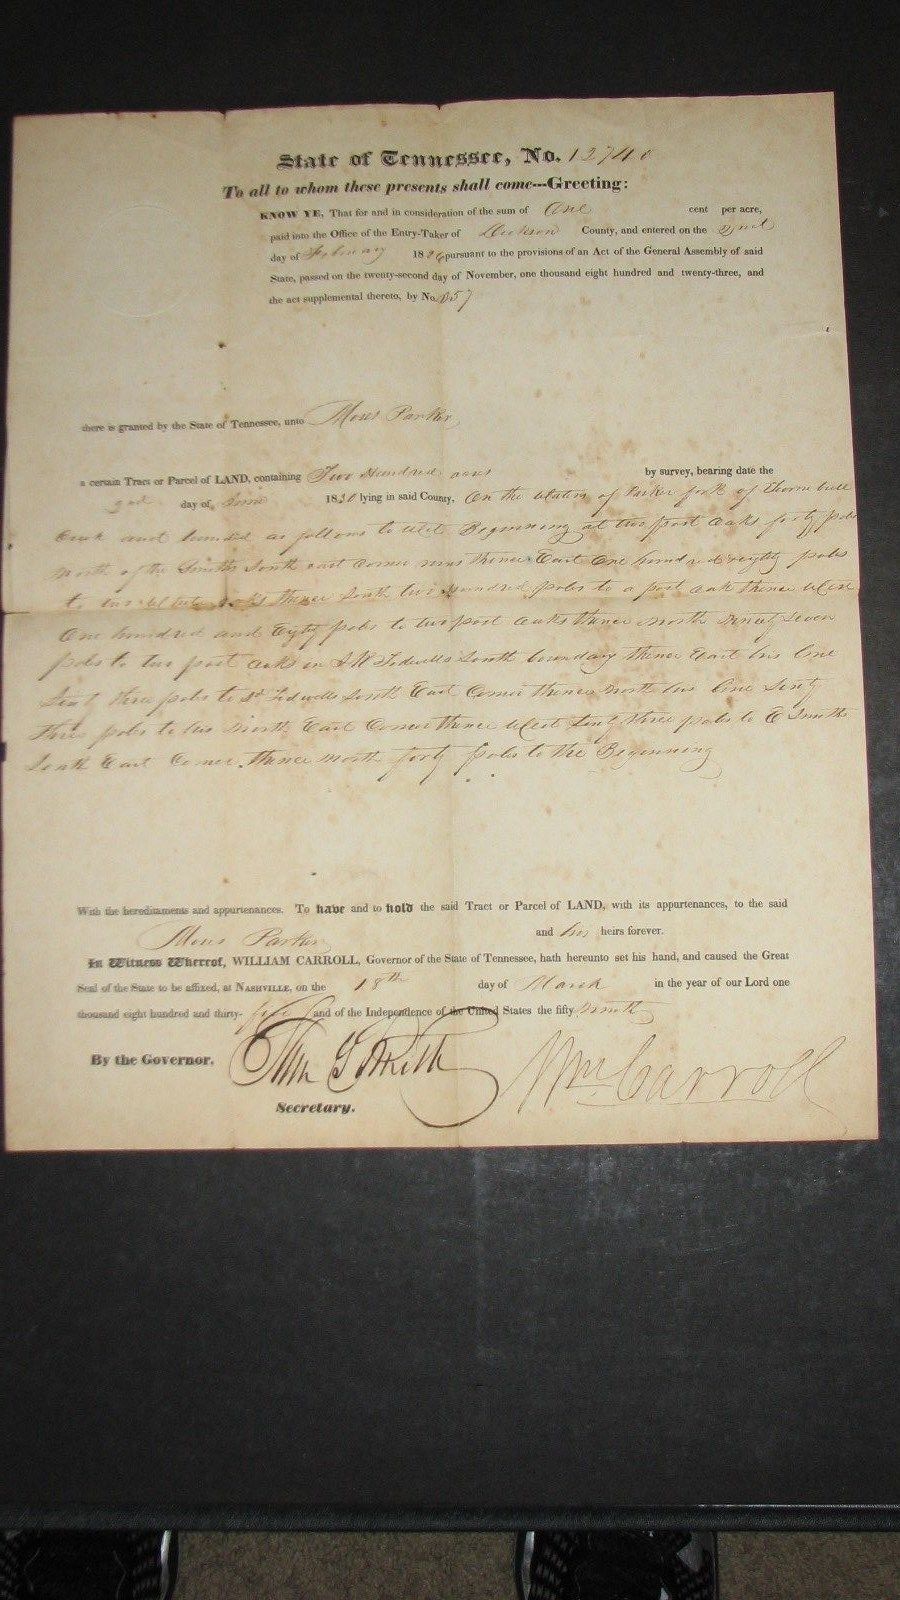 State of Tennessee, No. 12740
To all to whom these presents shall come---Greeting:
KNOW YE, That for and in consideration of the sum of One cent per acre,
paid into the Office of the Entry-Taker of Dickson County, and entered on the
day of February 1826 pursuant to the provisions of an Act of the General Assembly of said
State, passed on the twenty-second day of November, one thousand eight hundred and twenty-three, and
the act supplemental thereto, by No. 857
there is granted by the State of Tennessee, unto Moses Parker
a certain Tract or Parcel of LAND, containing Two Hundred acres by survey, bearing date the
2nd day of June 1830 lying in said County, On the Waters of Parker fork of
Creek and bounded as follows to Wit Beginning at two post oaks forty poles
North of the Smiths South east Corner runs thence East One hundred eighty poles
to two White oaks thence South two Hundred poles to a post oak thence West
One hundred and Eighty poles to two post oaks thence North Ninety Seven
poles to two post oaks in Tidwells South boundary thence East his line
Sixty three poles to Sd Tidwells South East Corner thence North his line Sixty
three poles to his North East Corner thence West Sixty three poles to E Smiths
South East Corner, thence North forty poles to the Beginning
With the hereditaments and appurtenances. To have and to hold the said Tract or Parcel of LAND, with its appurtenances, to the said
Moses Parker and his heirs forever.
In Witness Whereof, WILLIAM CARROLL, Governor of the State of Tennessee, hath hereunto set his hand, and caused the Great
Seal of the State to be affixed, at NASHVILLE, on the 18th day of March in the year of our Lord one
thousand eight hundred and thirty-five and of the Independence of the United States the fifty ninth
By the Governor. Sam G Smith Wm Carroll
Secretary.